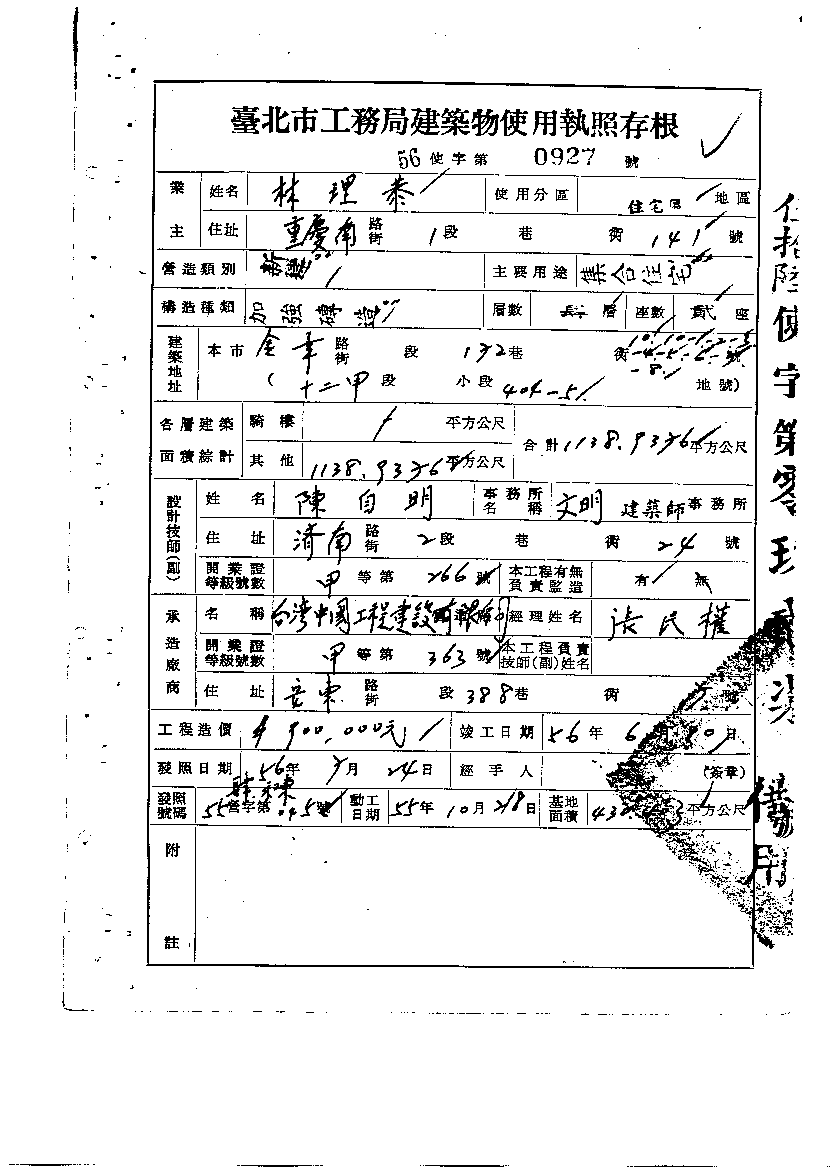 臺北市工務局建築物使用執照存根
56 使字第 0927 號
業主 姓名 林理泰 使用分區 住宅區 地區
住址 重慶南 路街 1段 巷 衖 141 號
營造類別 新建 主要用途 集合住宅
構造種類 加強磚造 層數 層 座數 貳座
建築地址 本市 金華 路街 段 巷 衖 號
(十二甲段 小段 404-51 地號)
各層建築面積綜計 騎樓 平方公尺 合計 平方公尺
其他 平方公尺
設計技師(副) 姓名 陳自明 事務所名稱 文明 建築師事務所
住址 濟南 路街 2段 巷 衖 24 號
開業證等級號數 甲等第 266 號 本工程有無負責監造 有 無
承造廠商 名稱 台灣中國工程建設有限公司 經理姓名 張民權
開業證等級號數 甲等第 363 號 本工程負責技師(副)姓名
住址 安東 路街 段 388巷 衖 號
工程造價 900,000元 竣工日期 56年 6月 日
發照日期 56年 7月 24日 經手人 (簽章)
發照號碼 55營字第 號 動工日期 55年 10月 28日 基地面積 平方公尺
附註
伍拾陸使字第零玖